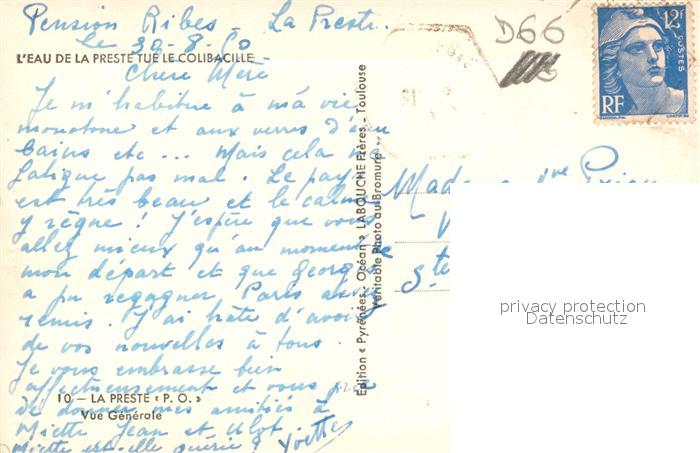 Pension Ribes - La Preste.
Le 30-8-50
L'EAU DE LA PRESTE TUE LE COLIBACILLE
Chère Mère
Je m'habitue à ma vie
monotone et aux verres d'eau
bains etc ... Mais cela me
fatigue pas mal. Le pays
est très beau et le calme
y règne ! J'espère que vous
allez mieux qu'au moment de
mon départ et que Georges
a pu regagner Paris
remis. J'ai hâte d'avoir
de vos nouvelles à tous.
Je vous embrasse bien
affectueusement et vous prie
de donner mes amitiés à
Miette Jean et
Miette est-elle guérie ? Yvette
10 - LA PRESTE « P. O. »
Vue Générale
Edition « Pyrénées, Océan » LABOUCHE Frères - Toulouse
Véritable Photo au Bromure
D66
12F
POSTES
RF
Madame
Ste
privacy protection
Datenschutz